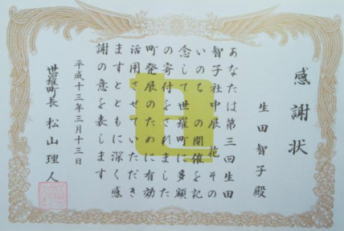 感謝状
生田智子殿
あなたは第三回生田
智子社中展 花 その
いのちの開催を記
念して世羅町に多額
の寄付をされました
町発展のために有効
活用させていただき
ますとともに深く感
謝の意を表します
平成十三年三月十三日
世羅町長 松山理人